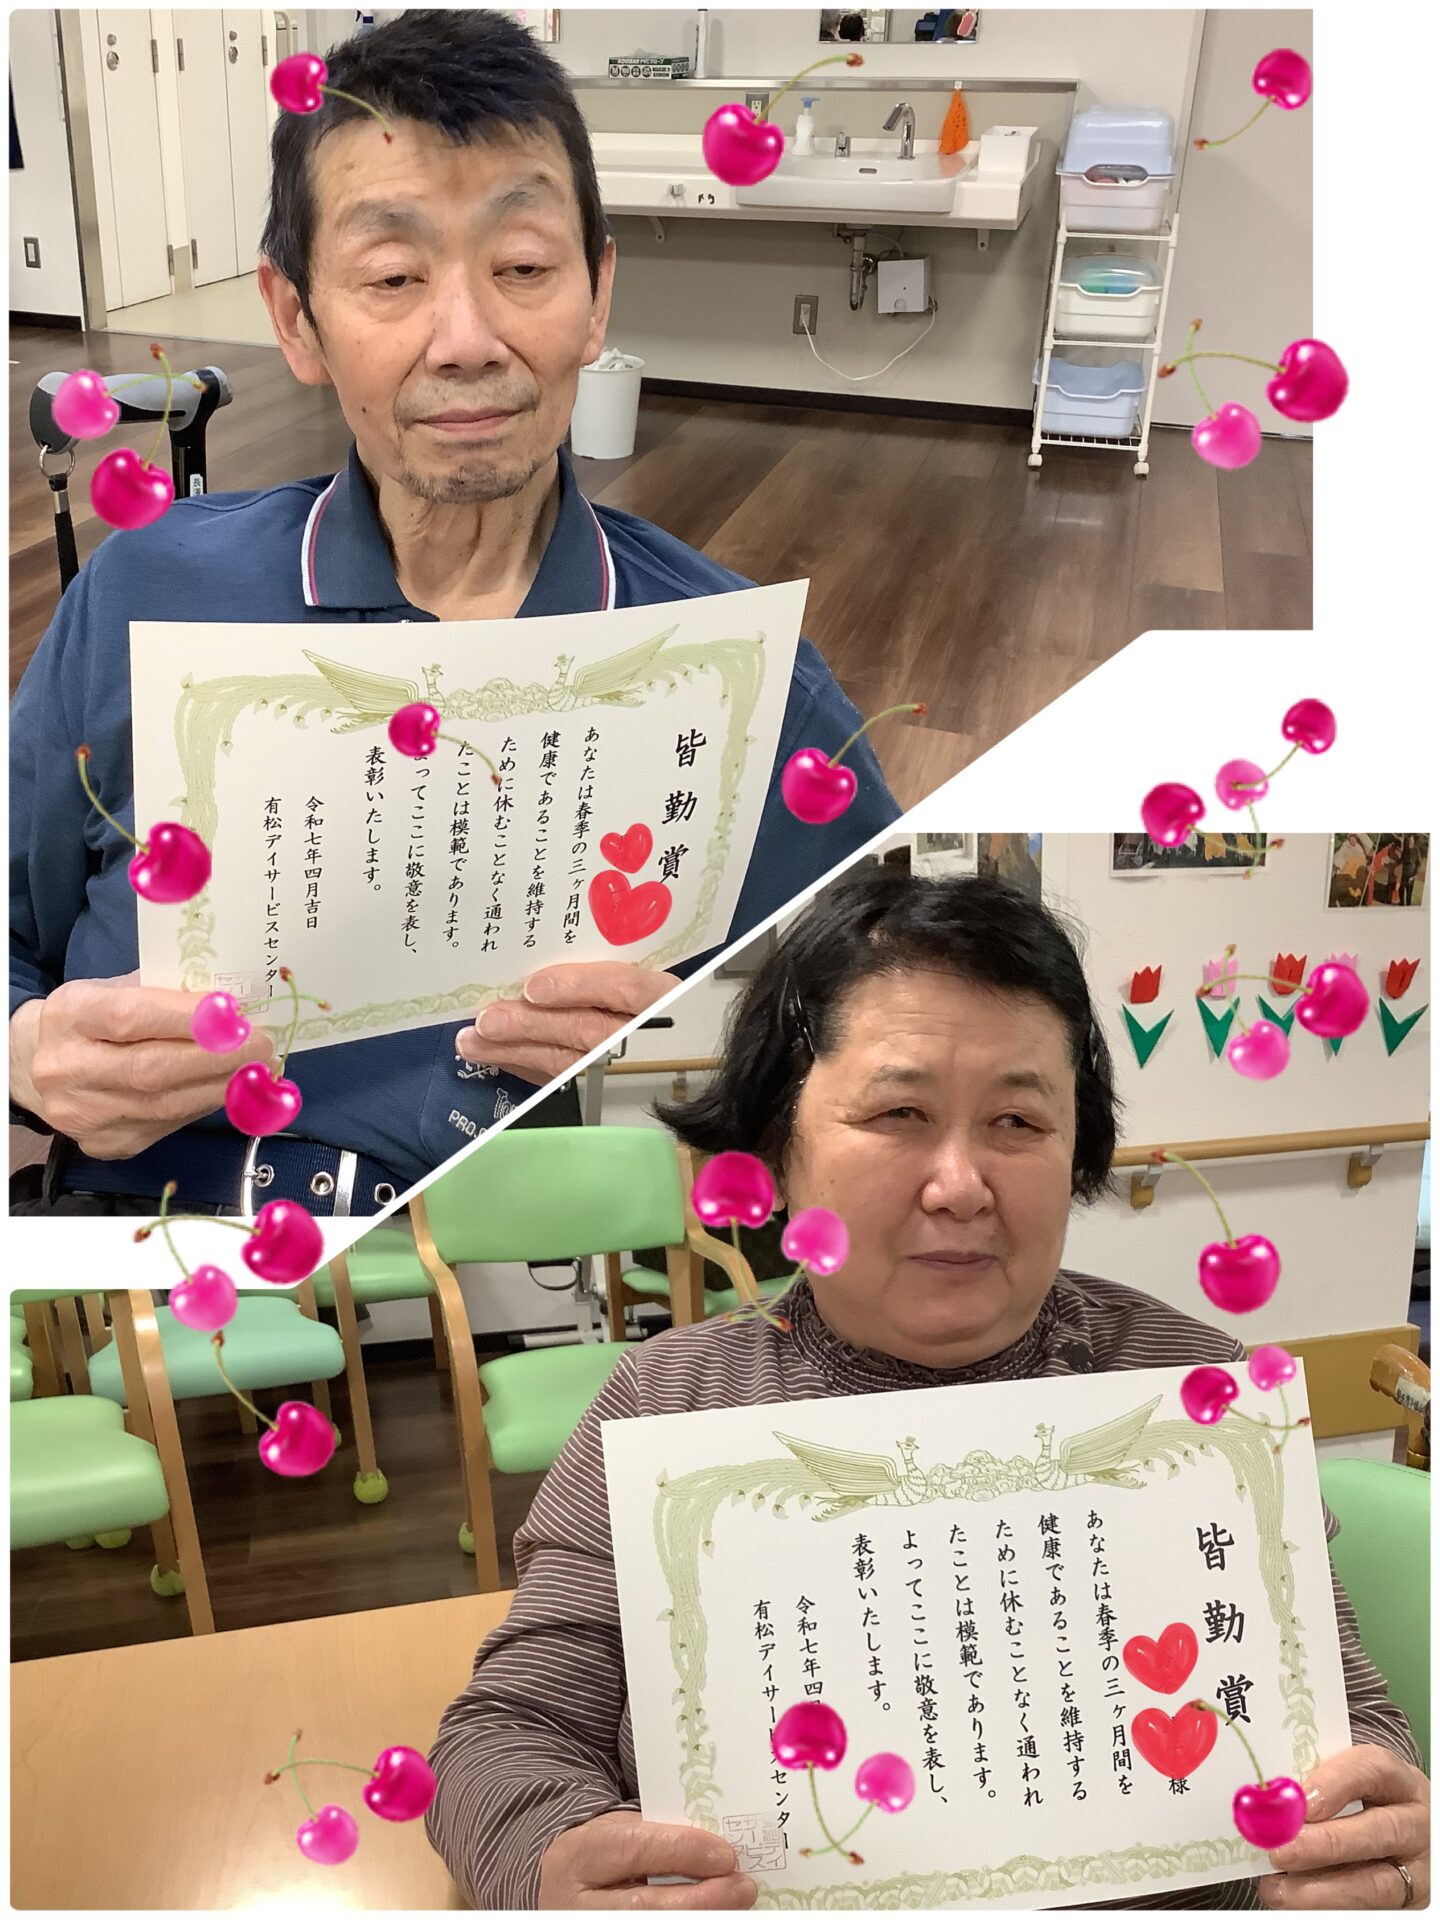 皆勤賞
あなたは春季の三ヶ月間を
健康であることを維持する
ために休むことなく通われ
たことは模範であります。
ってここに敬意を表し、
表彰いたします。
令和七年四月吉日
有松デイサービスセンター
PRO.
皆勤賞
様
あなたは春季の三ヶ月間を
健康であることを維持する
ために休むことなく通われ
たことは模範であります。
よってここに敬意を表し、
表彰いたします。
令和七年四
有松デイサービスセンター